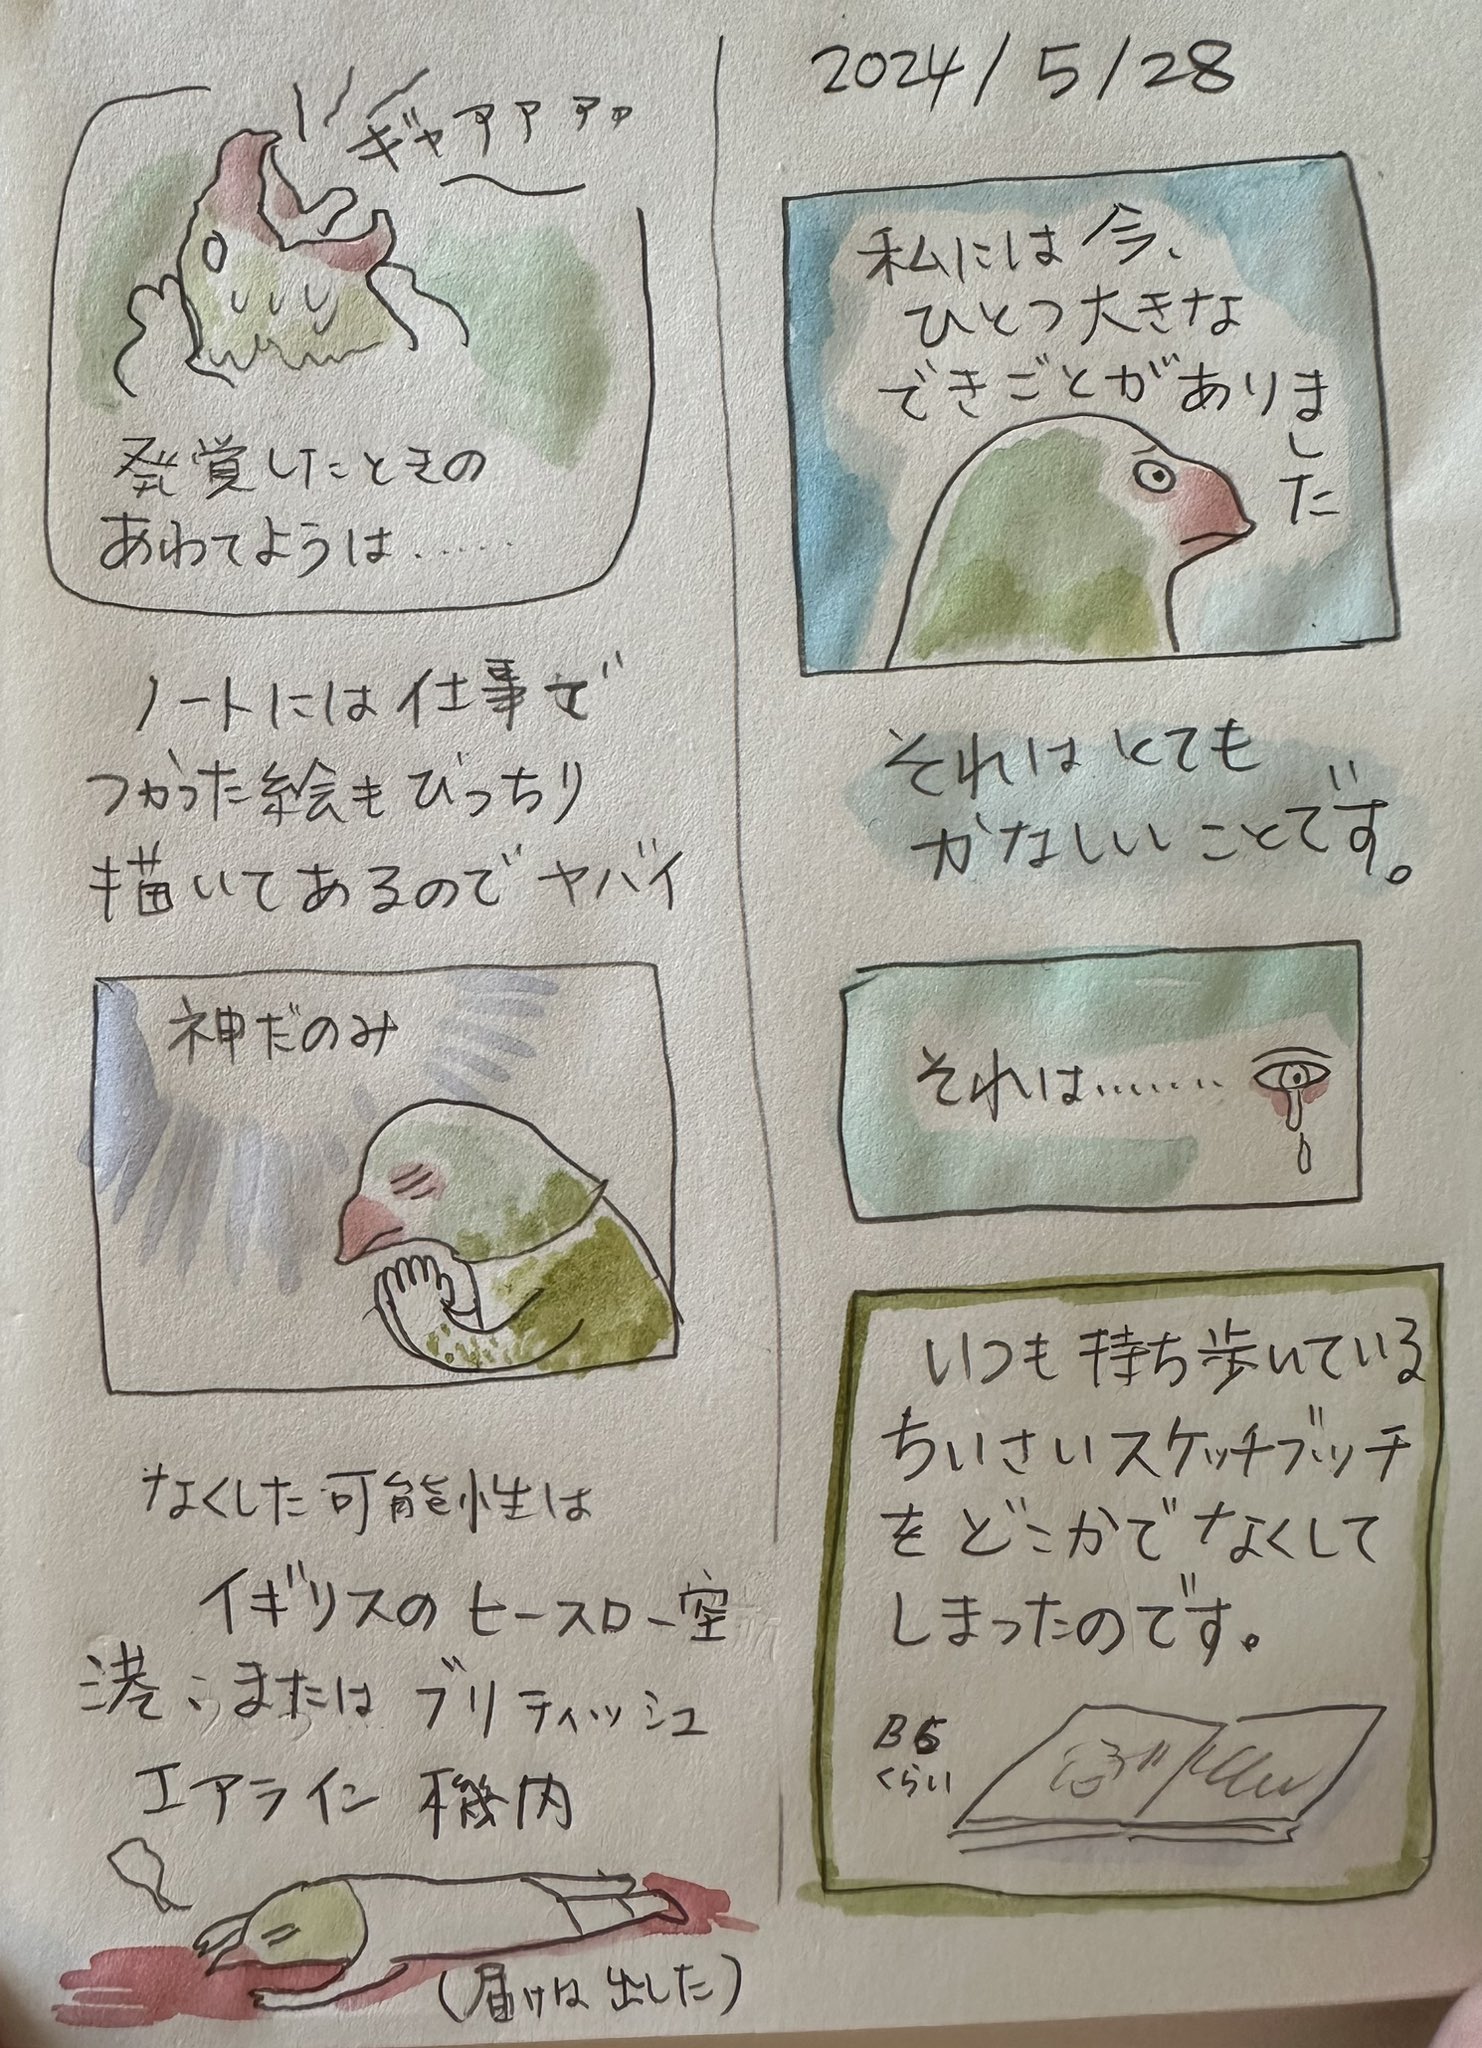 2024/5/28
私には今、
ひとつ大きな
できごとがありました
それはとても
かなしいことです。
それは………
いつも持ち歩いている
ちいさいスケッチブッチ
をどこかでなくして
しまったのです。
B6
くらい
ギャアアアァ
発覚したときの
あわてようは……
ノートには仕事で
つかった絵もびっちり
描いてあるのでヤバイ
神だのみ
なくした可能性は
イギリスのヒースロー空
港、またはブリティッシュ
エアライン機内
(届けは出した)